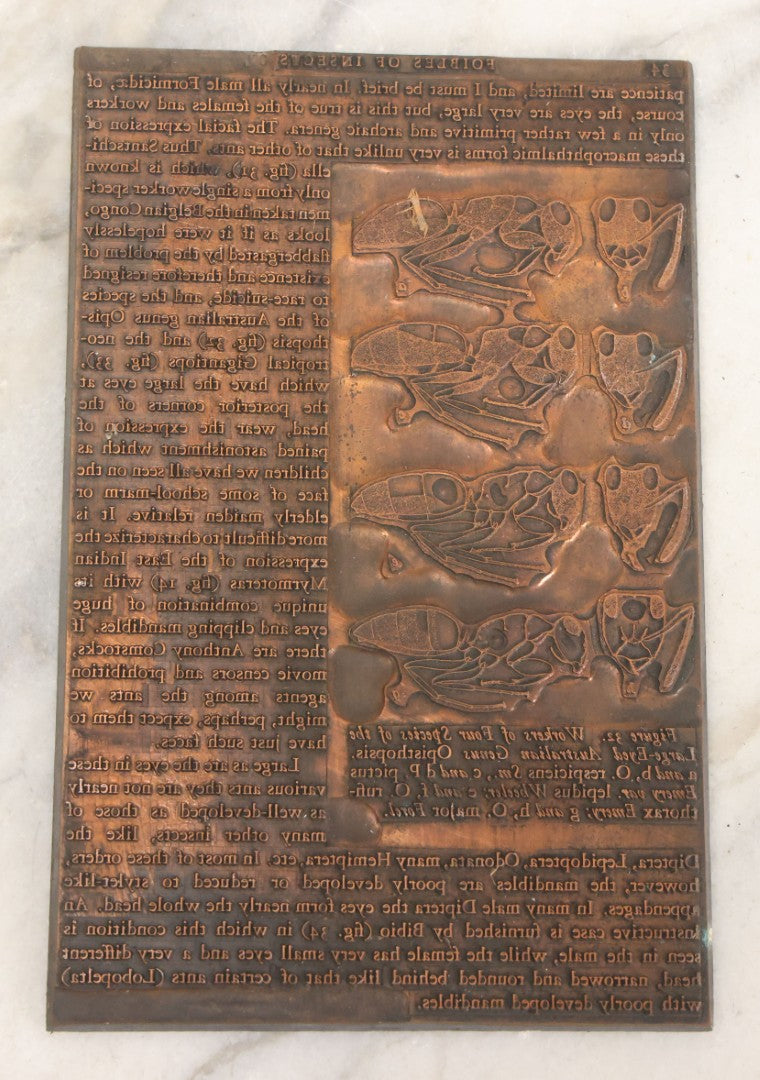 34 FOIBLES OF INSECTS
patience are limited, and I must be brief. In nearly all male Formicidæ, of
course, the eyes are very large, but this is true of the females and workers
only in a few rather primitive and archaic genera. The facial expression of
these macrophthalmic forms is very unlike that of other ants. Thus Santschi-
ella (fig. 31), which is known
only from a single worker speci-
men taken in the Belgian Congo,
looks as if it were hopelessly
flabbergasted by the problem of
existence and therefore resigned
to race-suicide, and the species
of the Australian genus Opis-
thopsis (fig. 32) and the neo-
tropical Gigantiops (fig. 33),
which have the large eyes at
the posterior corners of the
head, wear the expression of
pained astonishment which as
children we have all seen on the
face of some school-marm or
elderly maiden relative. It is
more difficult to characterize the
expression of the East Indian
Myrmoteras (fig. 14) with its
unique combination of huge
eyes and clipping mandibles. If
there are Anthony Comstocks,
movie censors and prohibition
agents among the ants we
might, perhaps, expect them to
have just such faces.
Large as are the eyes in these
various ants they are not nearly
as well-developed as those of
many other insects, like the
Figure 32. Workers of Four Species of the
Large-Eyed Australian Genus Opisthopsis.
a and b, O. respiciens Sm., c and d P. pictus
Emery var. lepidus Wheeler; e and f, O. rufi-
thorax Emery; g and h, O. major Forel.
Diptera, Lepidoptera, Odonata, many Hemiptera, etc. In most of these orders,
however, the mandibles are poorly developed or reduced to stylet-like
appendages. In many male Diptera the eyes form nearly the whole head. An
instructive case is furnished by Bibio (fig. 34) in which this condition is
seen in the male, while the female has very small eyes and a very different
head, narrowed and rounded behind like that of certain ants (Lobopelta)
with poorly developed mandibles.